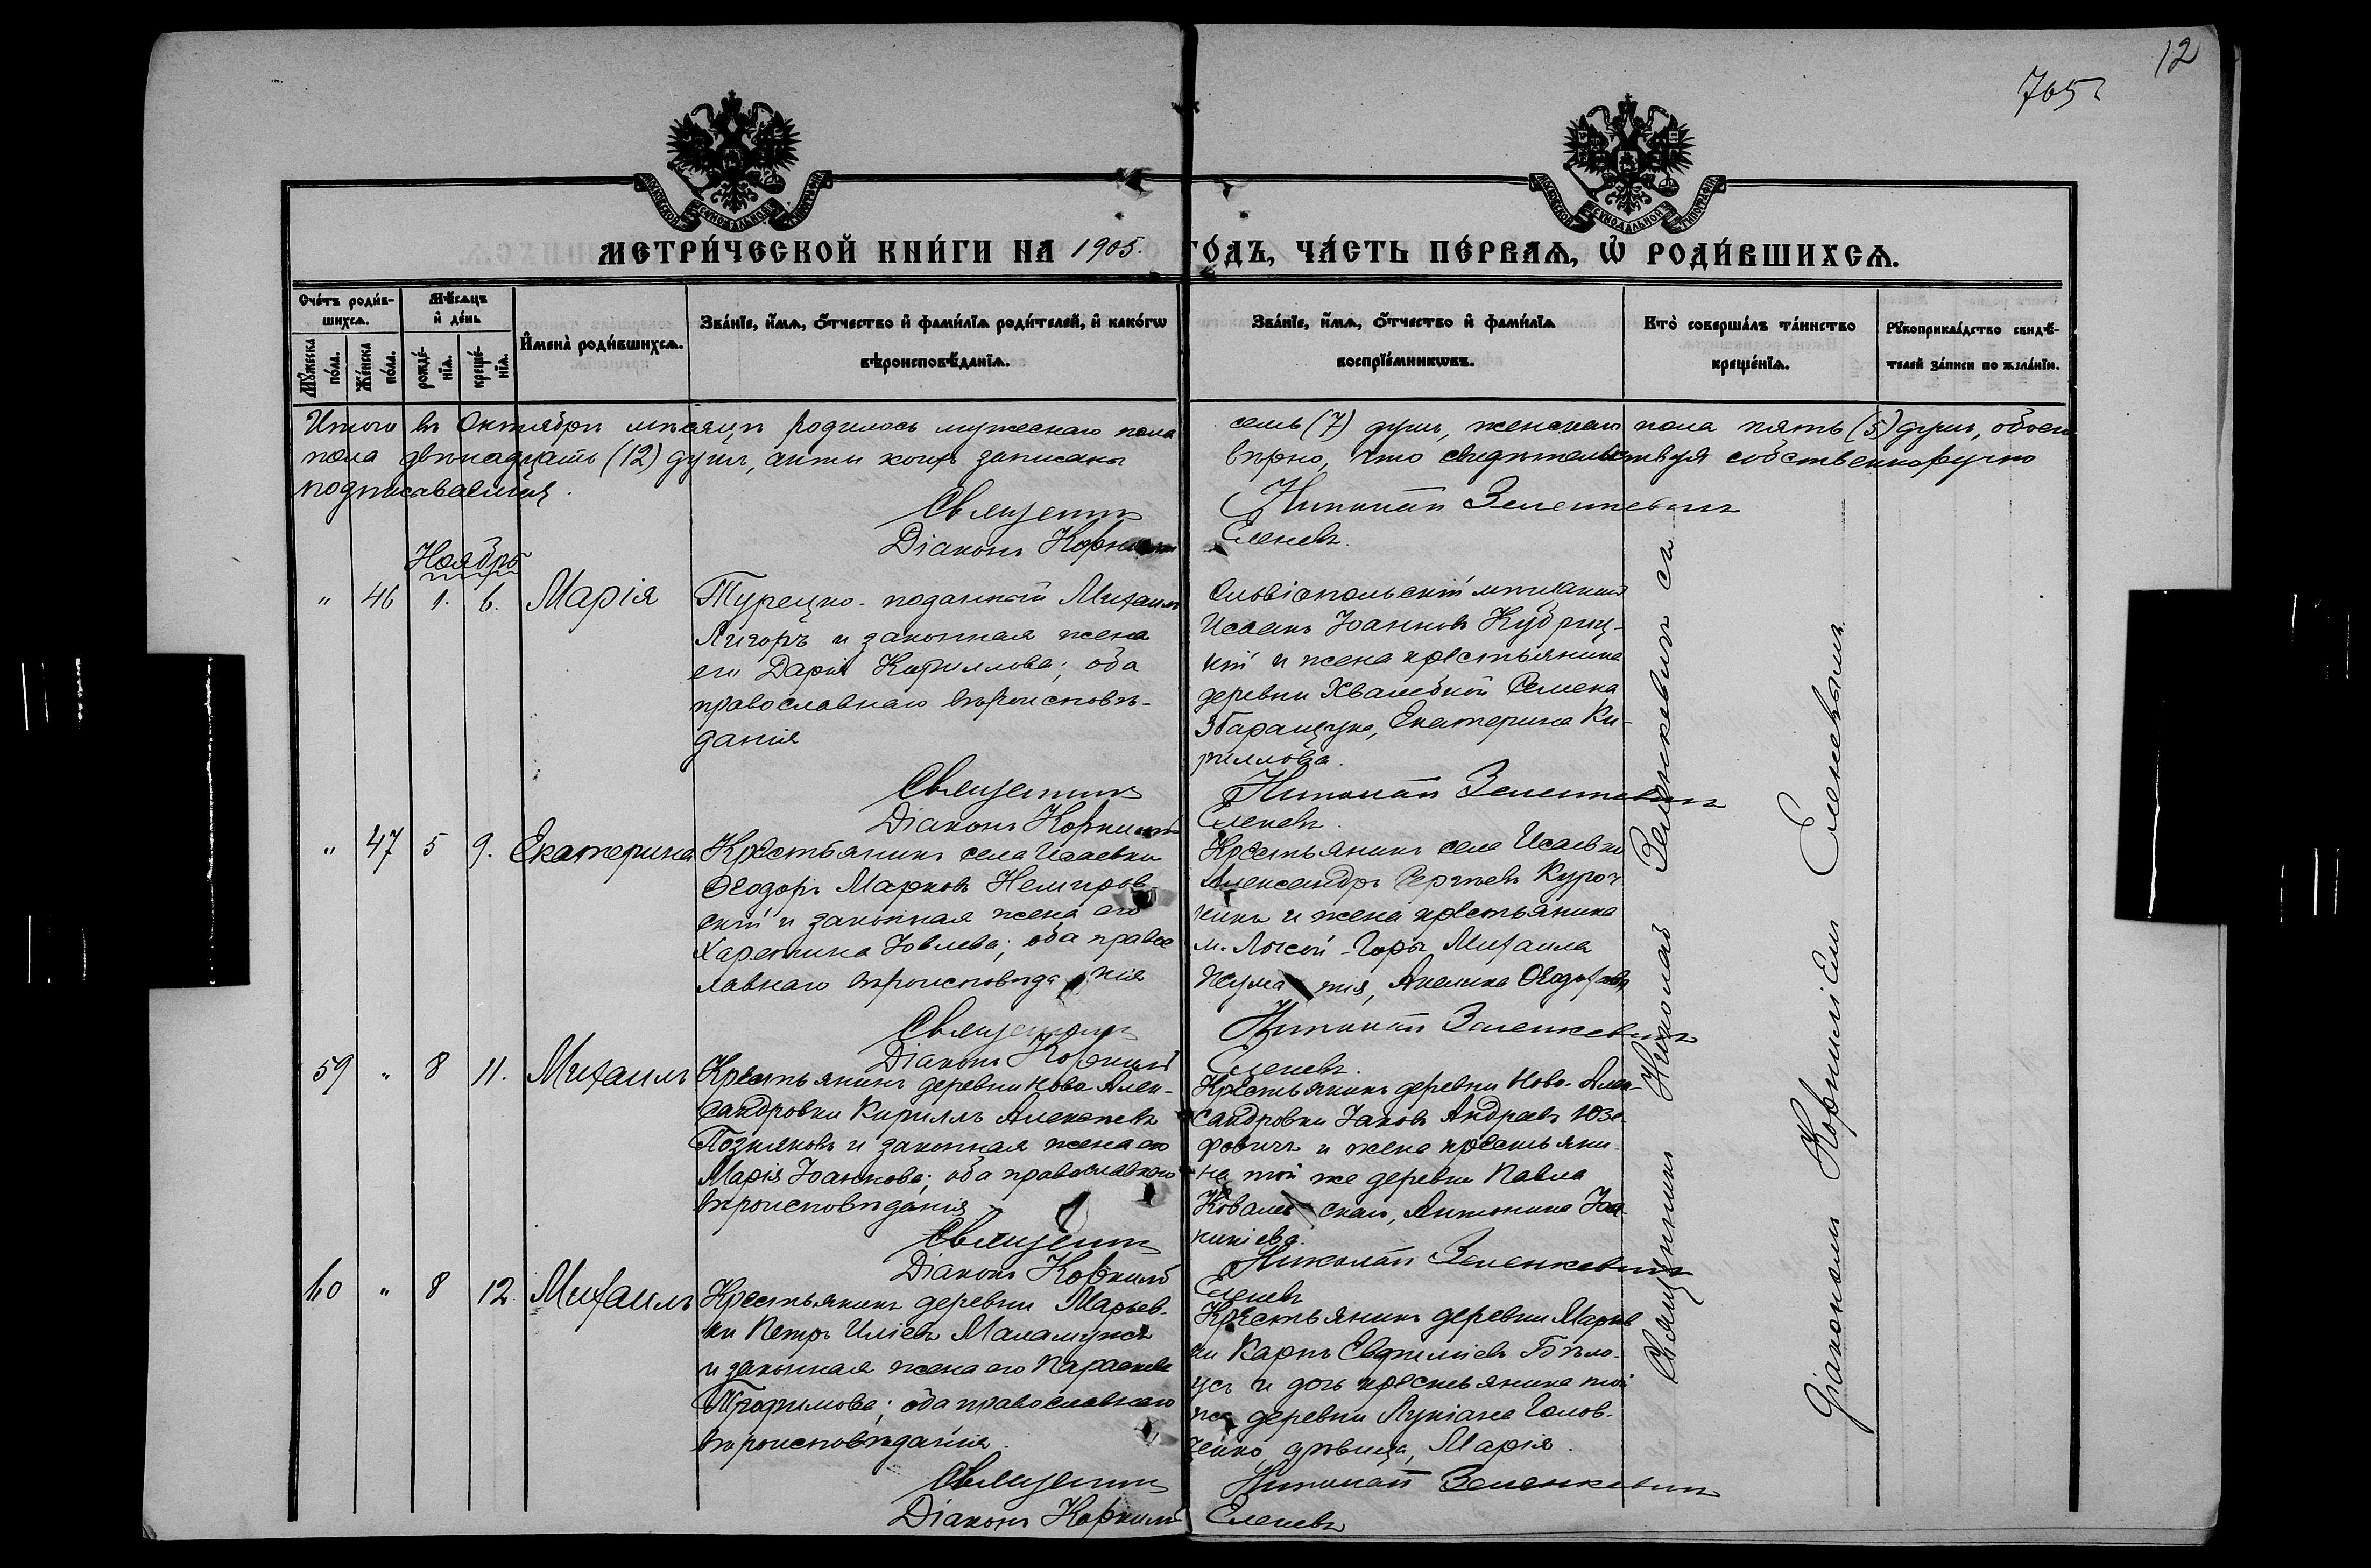 12
705
МОСКОВСКОЙ СѴНОДАЛЬНОЙ ТИПОГРАФІИ
МОСКОВСКОЙ СѴНОДАЛЬНОЙ ТИПОГРАФІИ
МЕТРИ́ЧЕСКОЙ КНИ́ГИ НА 1905. ГО́ДЪ, ЧА́СТЬ ПЕ́РВАѦ, Ѡ҆ РОДИ́ВШИХСѦ.
Сче́тъ роди́в-
шихсѧ.
Мꙋ́жеска по́ла.
Же́нска по́ла.
Мѣ́сѧцъ
и҆ де́нь
рожде́-
нїѧ.
креще́-
нїѧ.
И҆мена̀ роди́вшихсѧ.
Зва́нїе, и҆́мѧ, ѻ҆́тчество и҆ фами́лїѧ роди́телей, и҆ како́гѡ
вѣроисповѣ́данїѧ.
Зва́нїе, и҆́мѧ, ѻ҆́тчество и҆ фами́лїѧ
воспрїе́мникѡвъ.
Кто̀ соверша́лъ та́инство
креще́нїѧ.
Рꙋкоприкла́дство свидѣ́-
телей за́писи по жела́нїю.
Итого въ Октябрѣ мѣсяцѣ родилось мужескаго пола
пола двѣнадцать (12) душъ, акты коихъ записаны
подписавшимся.
Священникъ
Діаконъ Корнилій
семь (7) душъ, женскаго пола пять (5) душъ, обоего
вѣрно, что свидѣтельствуя собственноручно
Николай Зеленкевичъ
Еленевъ.
Ноябрь
" 46 1. 6. Марія
Турецко-поданный Михаилъ
Лигоръ и законная жена
его Дарія Кириллова; оба
православнаго вѣроисповѣ-
данія
Священникъ
Діаконъ Корнилій
Ольвіопольскій мѣщанинъ
Исаакъ Іоанновъ Кубриц-
кій и жена крестьянина
деревни Хвалебной Семена
Збаращука, Екатерина Ки-
риллова.
Николай Зеленкевичъ
Еленевъ.
" 47 5 9. Екатерина
Крестьянинъ села Исаевки
Ѳеодоръ Марковъ Немиров-
скій и законная жена его
Харетина Іовлева; оба правос
лавнаго вѣроисповѣданія
Священникъ
Діаконъ Корнилій
Крестьянинъ села Исаевки
Александръ Сергѣевъ Куроч
кинъ и жена крестьянина
м. Лысой-Горы Михаила
Акелина Ѳеодорова
Николай Зеленкевичъ
Еленевъ.
59 " 8 11. Михаилъ
Крестьянинъ деревни Ново-Алек-
сандровки Кириллъ Алексѣевъ
Позняковъ и законная жена его
Марія Іоаннова; оба православнаго
вѣроисповѣданія
Священникъ
Діаконъ Корнилій
Крестьянинъ деревни Ново-Алек-
сандровки Іаковъ Андреевъ Юзе-
фовичъ и жена крестьяни-
на той же деревни Павла
Ковалевскаго, Антонина Іоа-
никіева.
Николай Зеленкевичъ
Еленевъ
60 " 8 12. Михаилъ
Крестьянинъ деревни Марьев-
ки Петръ Иліевъ Маламужъ
и законная жена его Параскева
Трофимова; оба православнаго
вѣроисповѣданія.
Священникъ
Діаконъ Корнилій
Крестьянинъ деревни Марьев
ки Карпъ Евфиміевъ Бѣло-
усъ и дочь крестьянина той
же деревни Лукіана Голов-
ченко дѣвица, Марія.
Николай Зеленкевичъ
Еленевъ
Священникъ Николай Зеленкевичъ съ
Діакономъ Корниліемъ Еленевымъ.